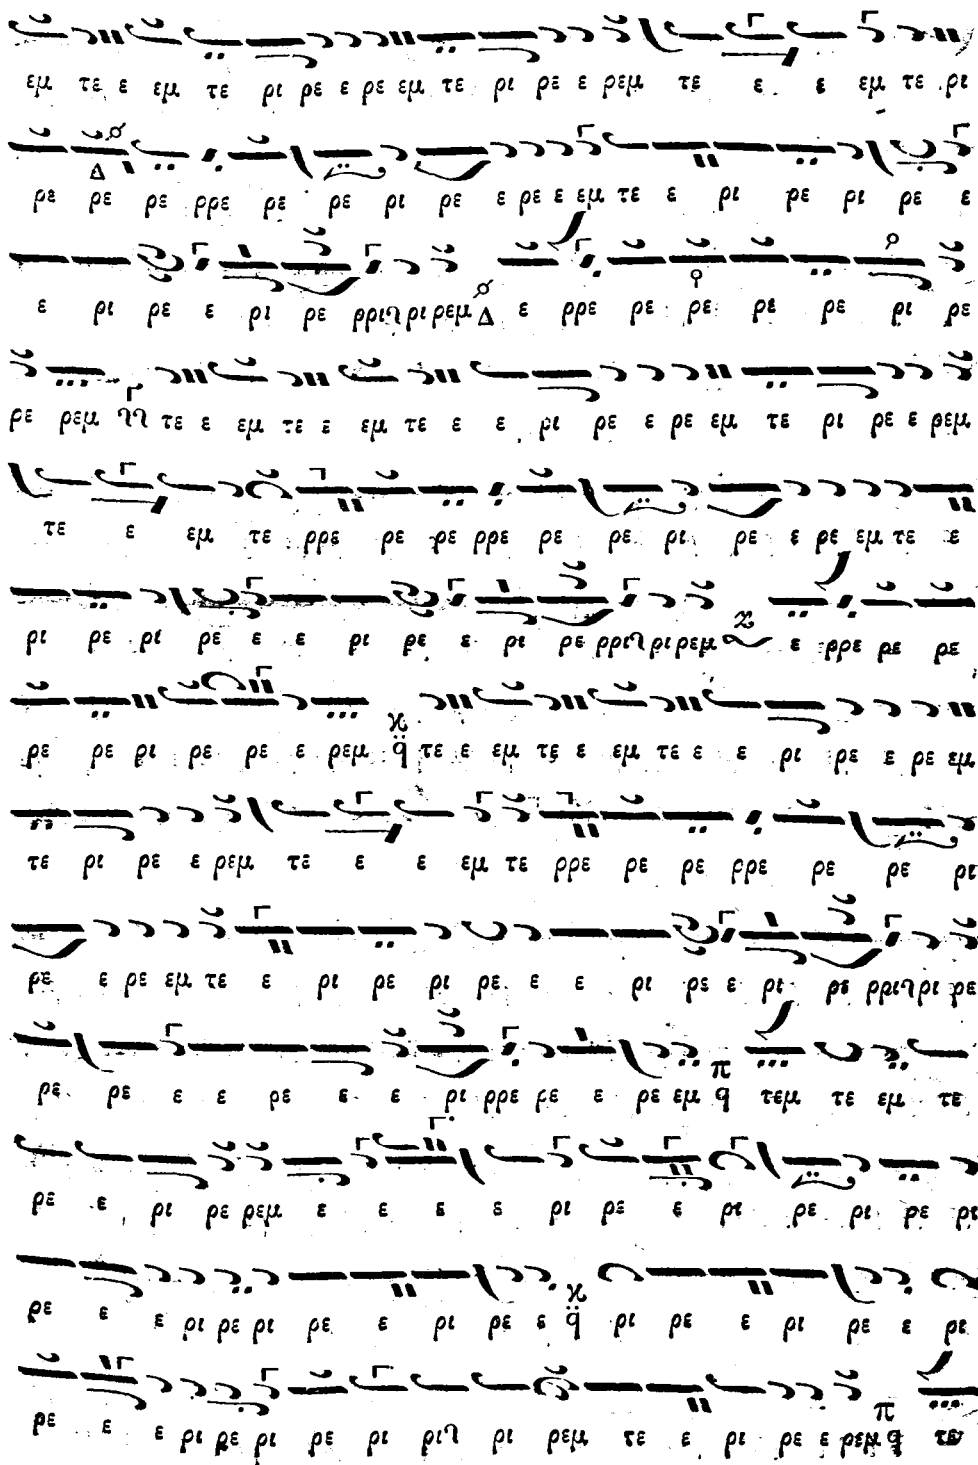 εμ τε ε εμ τε ρι ρε ε ρε εμ τε ρι ρε ε ρεμ τε ε ε εμ τε ρι
ρε ρε ρε ρρε ρε ρε ρι ρε ε ρε ε εμ τε ε ρι ρε ρι ρε ε
ε ρι ρε ε ρι ρε ρρι ρι ρεμ Δ ε ρρε ρε ρε ρε ρε ρι ρε
ρε ρεμ τε ε εμ τε ε εμ τε ε ε ρι ρε ε ρε εμ τε ρι ρε ε ρεμ
τε ε εμ τε ρρε ρε ρε ρρε ρε ρε ρι ρε ε ρε εμ τε ε
ρι ρε ρι ρε ε ε ρι ρε ε ρι ρε ρρι ρι ρεμ ε ρρε ρε ρε
ρε ρε ρι ρε ρε ε ρεμ τε ε εμ τε ε εμ τε ε ε ρι ρε ε ρε εμ
τε ρι ρε ε ρεμ τε ε ε εμ τε ρρε ρε ρε ρρε ρε ρε ρι
ρε ε ρε εμ τε ε ρι ρε ρι ρε ε ε ρι ρε ε ρι ρε ρρι ρι ρε
ρε ρε ε ε ρε ε ε ρι ρρε ρε ε ρε εμ π q τεμ τε εμ τε
ρε ε ρι ρε ρεμ ε ε ε ε ρι ρε ε ρι ρε ρι ρε ρι
ρε ε ε ρι ρε ρι ρε ε ρι ρε ε ρι ρε ε ρι ρε ε ρι
ρε ε ε ρι ρε ρι ρε ρι ρι ρι ρεμ τε ε ρι ρε ε ρεμ π